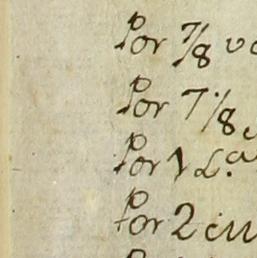 Por 7/8 vo
Por 7 1/8
Por 1 L.a
Por 2 cu